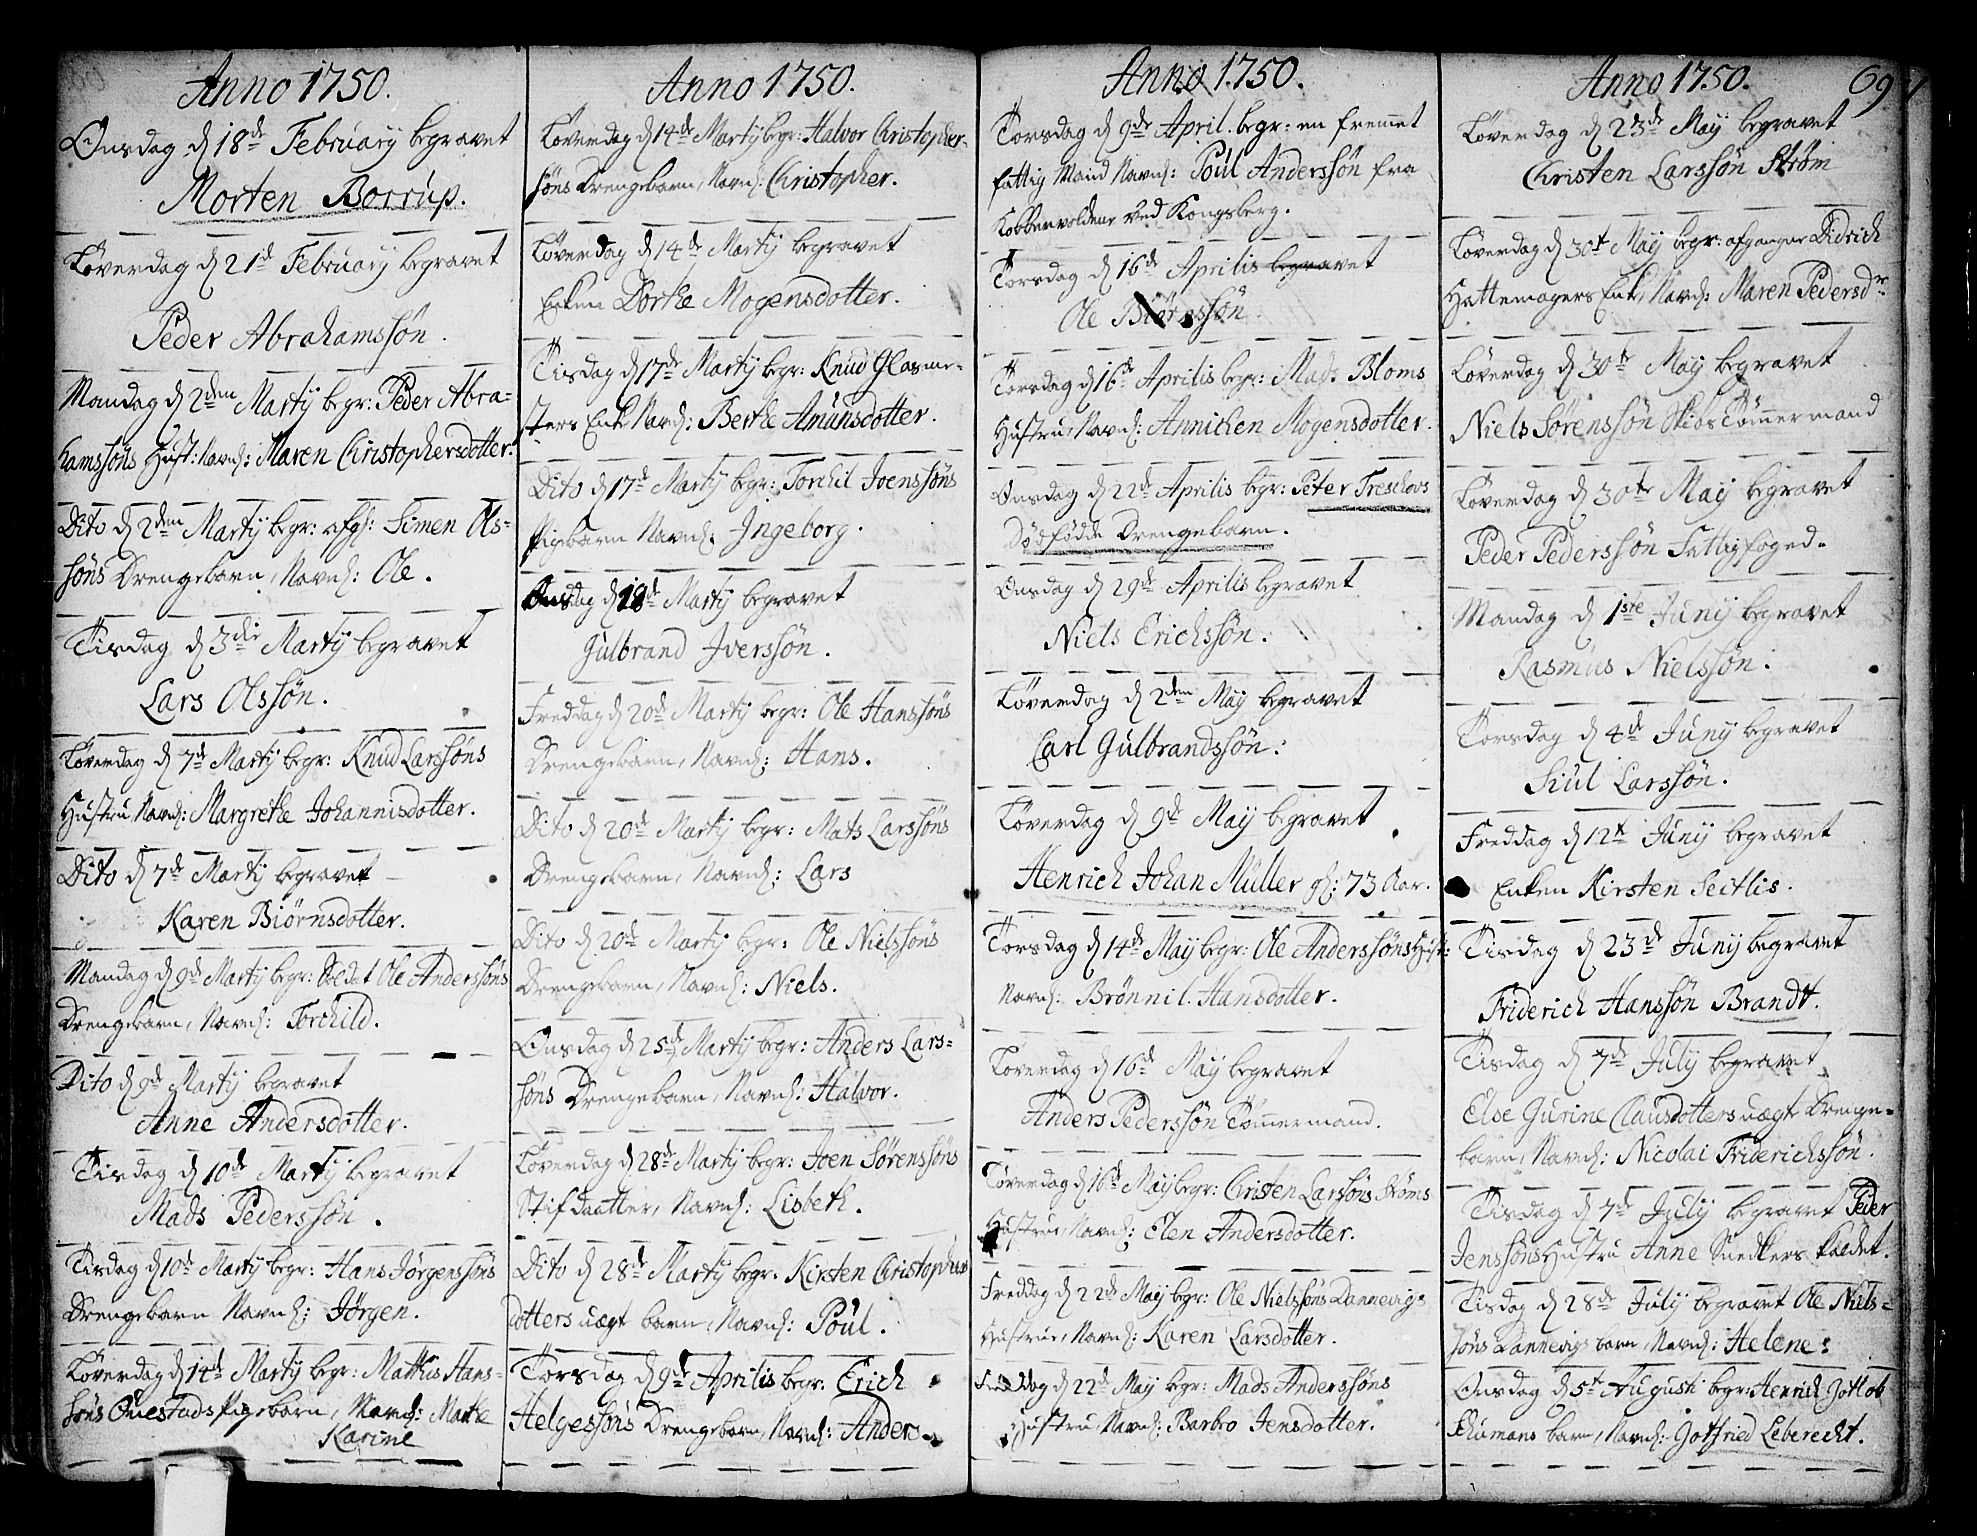 Anno 1750.
Onsdag d 18de February begravet
Morten Borrup.
Løverdag d 21d February begravet
Peder Abrahamssøn.
Mandag d 2den Martÿ begr: Peder Abra-
hamssøns Hust: Navnl: Maren Christophersdotter.
Dito d 2den Martÿ begr: afg: Simen Ols-
søns Drengebarn, Navnl: Ole.
Tisdag d 3die Martÿ begravet
Lars Olssøn.
Løverdag d 7de Martÿ begr: Knud Larssøns
Hustru Navnl: Margrethe Johannisdotter.
Dito d 7de Martÿ begravet
Karen Biørnsdotter.
Mandag d 9d Martÿ begr: Soldat Ole Anderssøns
Drengebarn, Navnl: Torchild.
Dito d 9d Martÿ begravet
Anne Andersdotter.
Tisdag d 10de Martÿ begravet
Mads Pederssøn.
Tisdag d 10de Martÿ begr: Hans Jørgenssøns
Drengebarn Navnl: Jørgen.
Løverdag d 14d Martÿ begr: Mathis Hans-
søns Questads Pigebarn, Navnl: Marthe
Karine
Anno 1750.
Løverdag d 14de Martÿ begr: Halvor Christopher-
søns Drengebarn, Navnl: Christopher.
Løverdag d 14de Martÿ begravet
Enken Dorthe Mogensdotter.
Tisdag d 17de Martÿ begr: Knud Glasme-
sters Enke Navnl: Berthe Amunsdotter.
Dito d 17de Martÿ begr: Torchil Joenssøns
Pigebarn Navnl. Ingeborg.
Onsdag d 18d Martÿ begravet
Gulbrand Iverssøn.
Freddag d 20d Martÿ begr: Ole Hanssøns
Drengebarn, Navnl: Hans.
Dito d 20de Martÿ begr: Mats Larssøns
Drengebarn, Navnl: Lars
Dito d 20de Martÿ begr: Ole Nielssøns
Drengebarn, Navnl: Niels.
Onsdag d 25d Martÿ begr: Anders Lars-
søns Drengebarn, Navnl: Halvor.
Løverdag d 28de Martÿ begr: Joen Sørenssøns
Stifdaatter, Navnl: Lisbeth.
Dito d 28de Martÿ begr. Kirsten Christopher
dotters uægt barn, Navnl: Poul.
Torsdag d 9d Aprilis begr: Erich
Helgessøns Drengebarn, Navnl: Anders
Anno 1750.
Torsdag d 9de April. begr: en fremmet
fattig Mand Navnl: Poul Anderssøn fra
Kobbervoldene ved Kongsberg.
Torsdag d 16de Aprilis begravet
Ole Biørnssøn
Torsdag d 16de Aprilis begr: Mads Bloms
Hustru, Navnl: Annichen Mogensdotter.
Onsdag d 22de Aprilis begr: Peter Treschovs
Dødfødde Drengebarn.
Onsdag d 29de Aprilis begravet
Niels Erichssøn.
Løverdag d 2den May begravet
Carl Gulbrandssøn:
Løverdag d 9d May begravet
Henrich Johan Müller gl: 73 Aar.
Torsdag d 14de May begr: Ole Anderssøns Hust:
Navnl: Brønnil. Hansdotter.
Løverdag d 16de May begravet
Anders Pederssøn Tømmermand.
Løverdag d 16d May begr: Christen Larssøns Strøms
Hustrue, Navnl: Elen Andersdotter.
Freddag d 22de May begr: Ole Nielssøns Dannevigs
Hustrue, Navnl: Karen Larsdotter.
Freddag d 22d May begr: Mads Anderssøns
Hustru Navnl: Barbro Jensdotter.
Anno 1750.
69
Løverdag d 23de May begravet
Christen Larssøn Strøm
Løverdag d 30t May begr: afgangne Didrich
Hattemagers Enke, Navnl: Maren Pedersdr
Løverdag d 30te May begravet
Niels Sørenssøn Skibs Tømmermand
Løverdag d 30te May begravet
Peder Pederssøn Fattigfoged.
Mandag d 1ste Juny begravet
Rasmus Nielssøn.
Torsdag d 4de Juny begravet
Siul Larssøn.
Freddag d 12t Juny begravet
Enken Kirsten Seitlis.
Tisdag d 23de Juny begravet
Friderich Hanssøn Brandt.
Tisdag d 7de July begravet
Else Gurine Clausdotters uægt Drenge-
barn, Navnl: Nicolai Friderichssøn.
Tisdag d 7de July begravet Peder
Jenssøns Hustru Anne Snedkers kaldet.
Tisdag d 28de July begravet Ole Niels-
søns Dannevigs barn, Navnl: Helene:
Onsdag d 5t Augusti begr: Henrich Gotlob
Schumans barn, Navnl: Gotfried Leberecht.